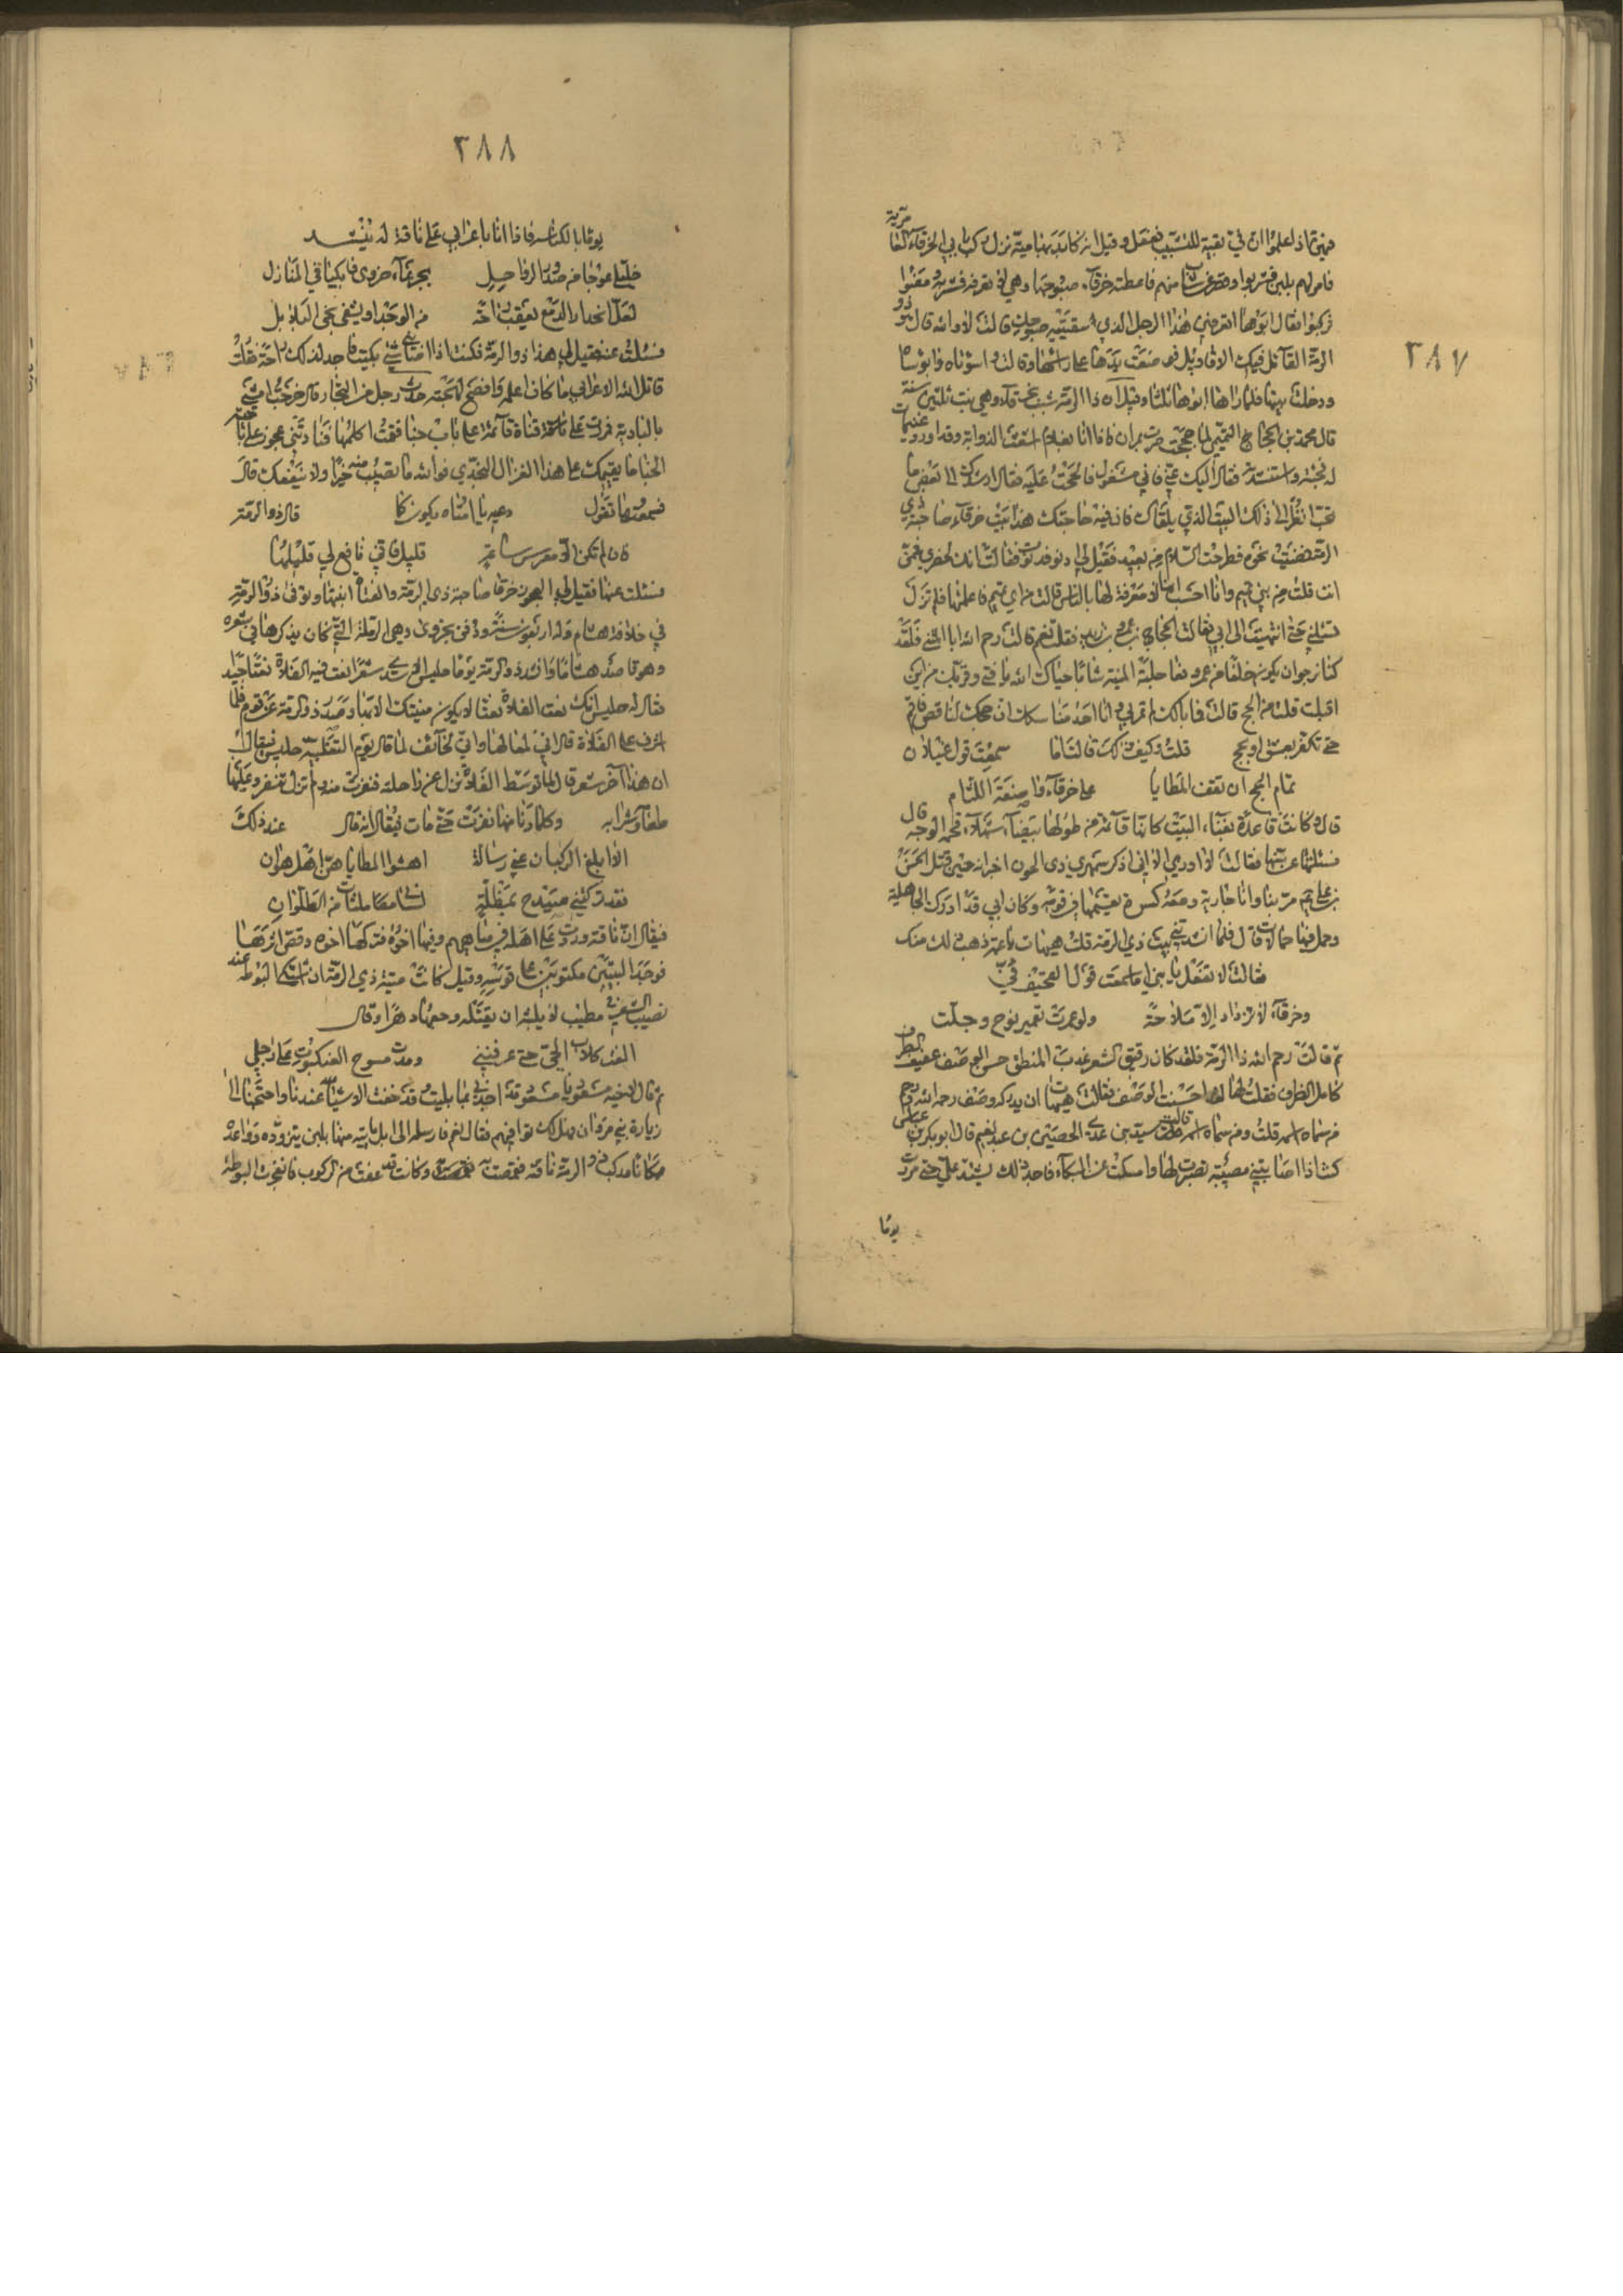 ٣٨٧
مرّية
فهني تماذ لعلموا ان في بقية للتشبيب ففعل وقيل انه كايد بها مية نزل ركب بابي الخرقآء العا
فامر لهم بلبن فشربوا وقصر عن شاب منهم فاعطته خرقآء صبوحها وهي لا تعرفه فشربه ومضوا
فركبوا فقال ابوها اتعرفين هذا الرجل الذي اسقيتيه صبوحك قالت لا والله قال هو ذو
الرمة القآئل فيك الاقاويل فوضعت يدها على راسها وقالت واسوتاه وابوساه
ودخلت بيتها فلم يراها ابوها ثلثا وقيل ان ذا الرمة شبب بخرقآء وهي بنت ثمانين سنة
قال محمد بن الحجاج التميمي لما حججت مررت بمران فاذا انا بغلام اشعث الذوابة وقد اورد غنيمات
له فجئته واستنشدته فقال اليك عني فاني مشغول فالححت عليه فقال ارشدك الى بعض ما
تحب انظر الى ذلك البيت الذي يلقاك فان فيه حاجتك هذا بيت خرقآء صاحبة ذي
الرمة فمضيت نحوه فطرحت السلام من بعيد فقيل لي ادنو فدنوت فقالت انك لحضري فممن
انت قلت من بني تميم وانا احسب انها لا معرفة لها بالناس قالت من اي تميم فاعلمتها فلم تزل
تسئلني حتى انتهيت الى ابي فقالت الحجاج بن عمير بن يزيد فقلت نعم قالت رحم الله ابا المثنى فلقد
كنا نرجو ان يكون خلفا من عمرو نعا جلته المنية شابا حياك الله يا فتى وقربك من اين
اقبلت قلت من الحج قالت فما بالك لم تمر بي وانا احد مناسك ان حجك لناقص فاقم
حتى تكفر بعتق او بحج قلت وكيف ذلك قالت اما سمعت قول غيلان
تمام الحج ان تقف المطايا على خرقآء واضعة اللثام
قال وكانت قاعدة بفناء البيت كانها قآئمة من طولها بيضآء شهلآء فخمة الوجه قال
فسئلتها عن سنها فقالت لا ادري الا اني اذكر شمر بن ذي الجوشن اخزاه حين قتل الحسين
بن علي ثم مر بنا وانا جارية ومعه كسوة يقسمها في قومه وكان ابي قد ادرك الجاهلية
وحمل فيها حمالات قال فلما انشدتني بيت ذي الرمة قلت هيهات يا عمة ذهب ذلك منك
فقالت لا تفعل يا بني اما سمعت قول العجيف في
وخرقآء لا تزداد الا ملاحة ولو عمرت تعمير نوح وجلت
ثم قالت رحم الله ذا الرمة فلقد كان رقيق الشعر عذب المنطق حسن الوصف عفيف الطرف
كامل الظرف فقلت لها لقد احسنت الوصف فقالت هيهات ان يدركه وصف رحمه الله ورحم
من سماه اسمه قلت ومن سماه اسمه قالت سيد بني عدي الحصين بن عبد نعيم قال ابو بكر بن عياش
كنت اذا اصابتني مصيبة تصبرت لها وامسكت عن البكآء فاجد ذلك يشتد علي حتى مررت
يوما
٣٨٨
يوما بالكناسه فاذا انا باعرابي على ناقة له ينشد
خليلي عوجا من صدور الرواحيل بجرعآء حزوى فابكيا في المنازل
لعل انحدار الدمع يعقب راحة من الوجد او يشفي نجي البلابل
فسئلت عنه فقيل لي هذا ذو الرمة فكنت اذا اصابني شي بكيت فاجد لذلك راحة فقلت
قاتل الله الاعرابي ما كان اعلمه وافصح لهجته حدث رجل من النجار قال خرجت امشي
بالبادية فمررت على فتاة قآئمة على باب خبا فقمت اكلمها فنادتني عجوز من ناحية
الخبا ما يقيمك على هذا الغزال النجدي فوالله ما تصيب منه خيرا ولا ينفعك قال
فسمعتها تقول دعيه يا امتاه يكون كما قال ذو الرمة
فان لم تكن الا معرس ساعة قليلا فاني نافع لي قليلها
فسئلت عنها فقيل لي العجوز خرقا صاحبة ذي الرمة والفتاة ابنتها وتوفى ذو الرمة
في خلافة هشام وله اربعون سنة ودفن بحزوى وهي الرملة التي كان يذكرها في شعره
وهو قاصد هشاما وانشد ذو الرمة يوما حليس شعرا نعت فيه الفلاة نعتا جيد
فقال له حليس انك نعت الفلاة نعتا لا يكون منيتك الا بها وصدر ذو الرمة عن قوم فلما
اشرف على الفلاة قال اني لها لها واني لخآئف لما قال يوم التغلبيه حليس فيقال
ان هذا آخر شعر قال لما توسط الفلاة نزل عن راحلته فنفرت منه ولم تزل تنفر وعليها
طعامه وشرابه وكلما دنا منها نفرت حتى مات فيقال انه قال عند ذلك
الا ابلغ الركبان عني رسالة اهينوا المطايا هن اهل هوان
فقد تركتني صيدح بمضلة لساني ملتاث من الطلوان
فيقال ان ناقته وردت على اهله في مياههم وفيها اخوه فركبها اخوه وقص اثرها
فوجد البيتين مكتوبين على قوسه وقيل كانت ميتة ذي الرمة ان اشتكى البوطه عند
نصيب الشعر في مطيب لا يلبث ان يقتله وجعها دهرا وقال
الفت كلاب الحي حتى عرفنني ومدت نسوج العنكبوت على رجلي
ثم قال لاخيه مسعود يا مسعود قد اجدني تماثلت وقد خفت الاشياء عندنا واحتجنا الى
زيارة بني مروان فهل لك توافيهم فقال نعم فارسله الى ابل ياتيه منها بلبن يتزوده وواعده
مكانا فركب ذو الرمة ناقته فقمصت به وكانت قد عفت من الركوب فانفجرت البوطه